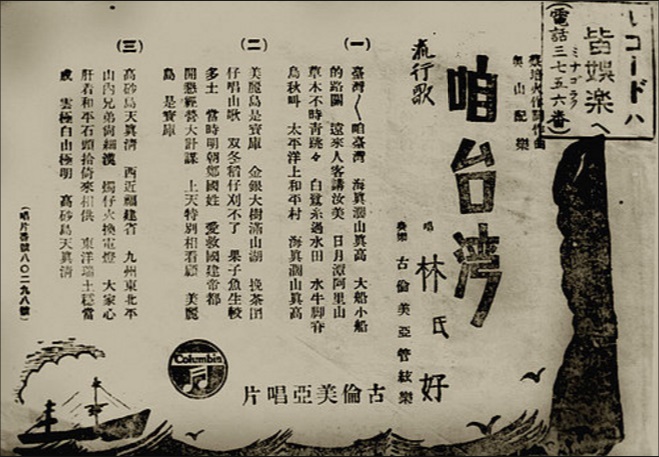 レコードハ
皆娯楽ヘ
ミナゴラク
(電話三七五六番)
蔡培火作詞作曲
奥山配樂
咱台湾
流行歌
唱 林氏好
奏樂 古倫美亞管絃樂
(一) 臺灣〱咱臺灣 海真濶山真高 大船小船
的路關 遠來人客講汝美 日月潭阿里山
草木不時青跳々 白鷺糸過水田 水牛脚脊
烏秋叫 太平洋上和平村 海真濶山真高
(二) 美麗島是寶庫 金銀大樹滿山湖 挽茶囝
仔唱山歌 双冬稻仔刈不了 果子魚生較
多土 當時明朝鄭國姓 愛救國建帝都
開墾經營大計謀 上天特別相看顧 美麗
島 是寶庫
(三) 高砂島天真清 西近福建省 九州東北平
山内兄弟尚細漢 燭仔火換電燈 大家心
肝着和平石頭拾倚來相供 東洋瑞士穩當
成 雲極白山極明 高砂島天真清
(唱片番號八〇二九八號)
Columbia
古倫美亞唱片